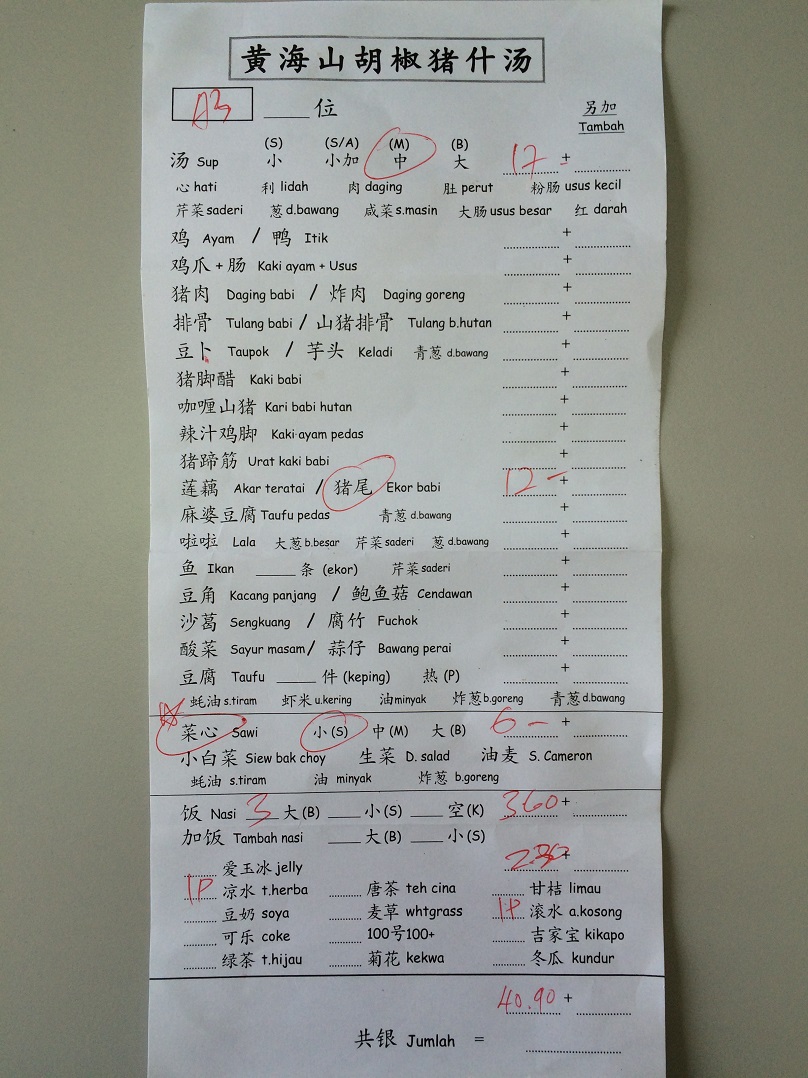 黄海山胡椒猪什汤
A3 ____ 位 另加
Tambah
(S) (S/A) (M) (B)
汤 Sup 小 小加 中 大 17 + -
心 hati 利 lidah 肉 daging 肚 perut 粉肠 usus kecil
芹菜 saderi 葱 d.bawang 咸菜 s.masin 大肠 usus besar 红 darah
鸡 Ayam / 鸭 Itik +
鸡爪 + 肠 Kaki ayam + Usus +
猪肉 Daging babi / 炸肉 Daging goreng +
排骨 Tulang babi / 山猪排骨 Tulang b.hutan +
豆卜 Taupok / 芋头 Keladi 青葱 d.bawang +
猪脚醋 Kaki babi +
咖喱山猪 Kari babi hutan +
辣汁鸡脚 Kaki ayam pedas +
猪蹄筋 Urat kaki babi +
莲藕 Akar teratai / 猪尾 Ekor babi 12 - +
麻婆豆腐 Taufu pedas 青葱 d.bawang +
啦啦 Lala 大葱 b.besar 芹菜 saderi 葱 d.bawang +
鱼 Ikan ____ 条 (ekor) 芹菜 saderi +
豆角 Kacang panjang / 鲍鱼菇 Cendawan +
沙葛 Sengkuang / 腐竹 Fuchok +
酸菜 Sayur masam / 蒜仔 Bawang perai +
豆腐 Taufu ____ 件 (keping) 热 (P) +
蚝油 s.tiram 虾米 u.kering 油 minyak 炸葱 b.goreng 青葱 d.bawang
菜心 Sawi 小 (S) 中 (M) 大 (B) 6 - +
小白菜 Siew bak choy 生菜 D. salad 油麦 S. Cameron
蚝油 s.tiram 油 minyak 炸葱 b.goreng
饭 Nasi 3 大 (B) ____ 小 (S) ____ 空 (K) 360 +
加饭 Tambah nasi ____ 大 (B) ____ 小 (S)
爱玉冰 jelly +
1P 凉水 t.herba 唐茶 teh cina 甘桔 limau
豆奶 soya 麦草 whtgrass 1P 滚水 a.kosong
可乐 coke 100号 100+ 吉家宝 kikapo
绿茶 t.hijau 菊花 kekwa 冬瓜 kundur
40.90 +
共银 Jumlah =